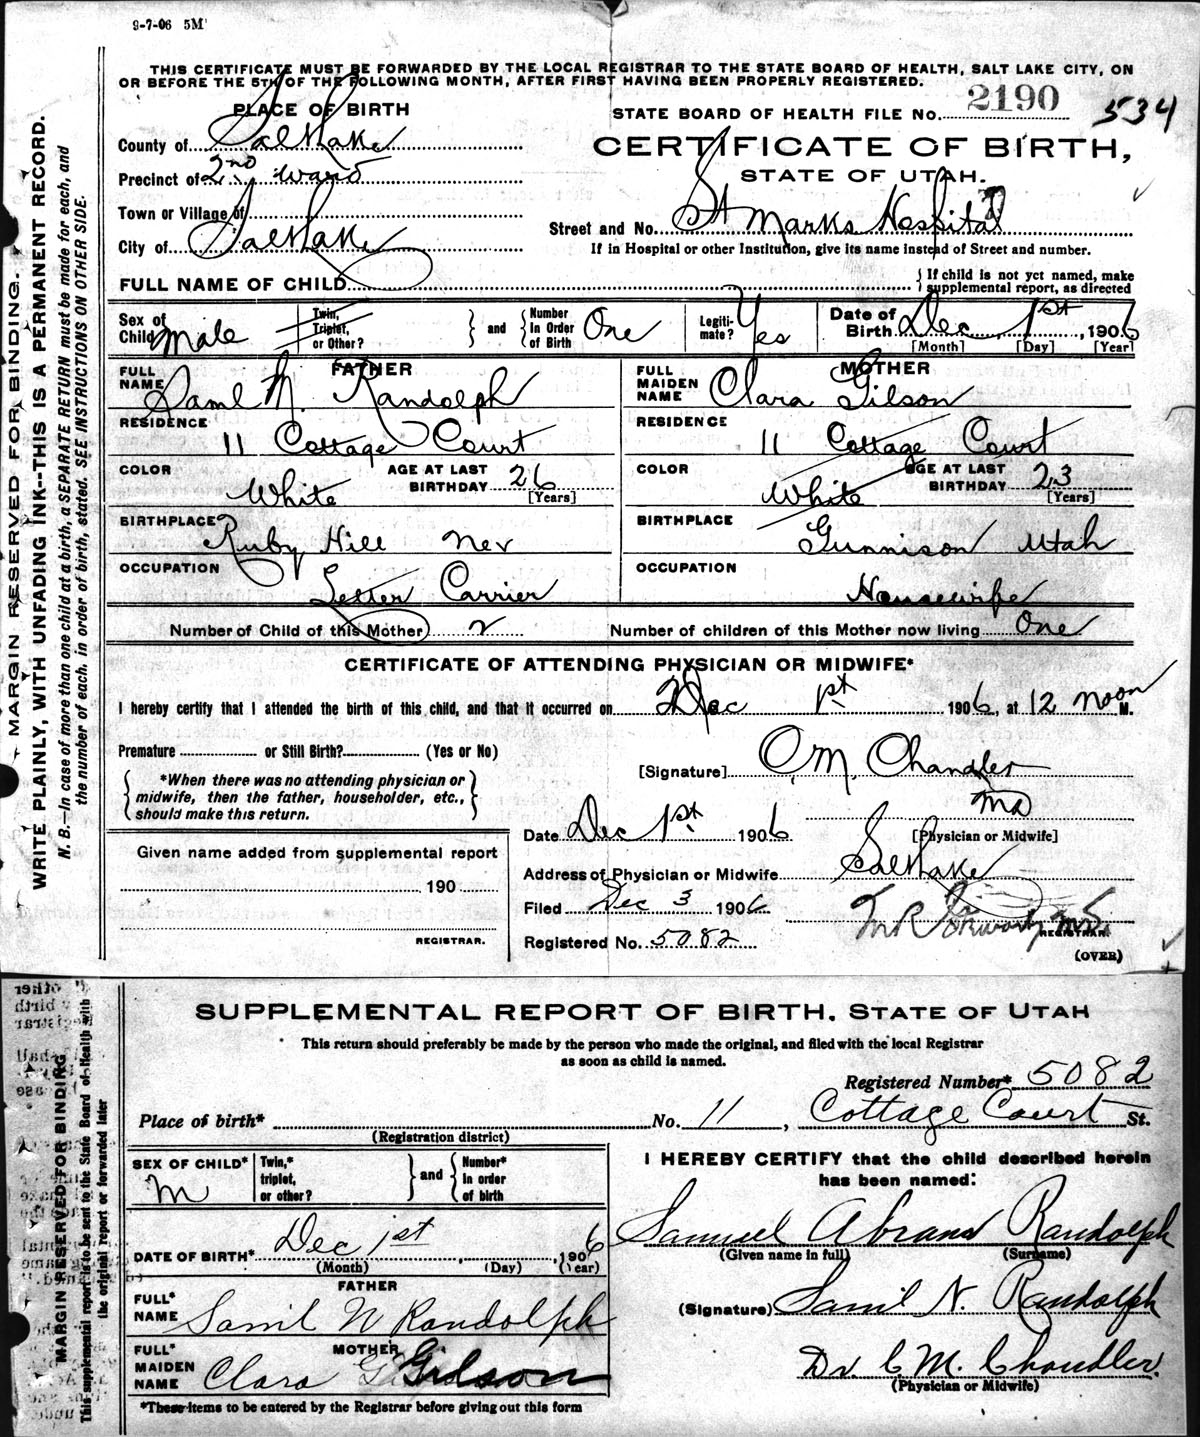 9-7-06 5M
THIS CERTIFICATE MUST BE FORWARDED BY THE LOCAL REGISTRAR TO THE STATE BOARD OF HEALTH, SALT LAKE CITY, ON
OR BEFORE THE 5TH OF THE FOLLOWING MONTH, AFTER FIRST HAVING BEEN PROPERLY REGISTERED.
PLACE OF BIRTH
STATE BOARD OF HEALTH FILE NO. 2190 534
County of Salt Lake
CERTIFICATE OF BIRTH,
STATE OF UTAH.
Precinct of 2nd Ward
Town or Village of
Street and No. St Marks Hospital
City of Salt Lake
If in Hospital or other Institution, give its name instead of Street and number.
FULL NAME OF CHILD
If child is not yet named, make
supplemental report, as directed
Sex of Child Male
Twin, Triplet, or Other?
and
Number in Order of Birth One
Legiti-mate? Yes
Date of Birth Dec 1st, 1906
[Month] [Day] [Year]
FATHER
FULL NAME Saml N. Randolph
RESIDENCE 11 Cottage Court
COLOR White
AGE AT LAST BIRTHDAY 26
[Years]
BIRTHPLACE Ruby Hill Nev
OCCUPATION Letter Carrier
MOTHER
FULL MAIDEN NAME Clara Gilson
RESIDENCE 11 Cottage Court
COLOR White
AGE AT LAST BIRTHDAY 23
[Years]
BIRTHPLACE Gunnison Utah
OCCUPATION Housewife
Number of Child of this Mother 2
Number of children of this Mother now living One
CERTIFICATE OF ATTENDING PHYSICIAN OR MIDWIFE*
I hereby certify that I attended the birth of this child, and that it occurred on Dec 1st 1906, at 12 Noon M.
Premature or Still Birth? (Yes or No)
*When there was no attending physician or
midwife, then the father, householder, etc.,
should make this return.
[Signature] C. M. Chandler
MD
[Physician or Midwife]
Date Dec 1st 1906
Given name added from supplemental report
190
REGISTRAR.
Address of Physician or Midwife Salt Lake
Filed Dec 3 1906
Registered No. 5082
REGISTRAR.
(OVER)
MARGIN RESERVED FOR BINDING.
WRITE PLAINLY, WITH UNFADING INK--THIS IS A PERMANENT RECORD.
N. B.—In case of more than one child at a birth, a SEPARATE RETURN must be made for each, and
the number of each, in order of birth, stated. SEE INSTRUCTIONS ON OTHER SIDE.
SUPPLEMENTAL REPORT OF BIRTH, STATE OF UTAH
This return should preferably be made by the person who made the original, and filed with the local Registrar
as soon as child is named.
Registered Number* 5082
Place of birth* No. 11, Cottage Court St.
(Registration district)
SEX OF CHILD* M
Twin,* triplet, or other?
and
Number* in order of birth
I HEREBY CERTIFY that the child described herein
has been named:
DATE OF BIRTH* Dec 1st, 1906
(Month) (Day) (Year)
Samuel Abram Randolph
(Given name in full) (Surname)
FATHER
FULL* NAME Saml N Randolph
(Signature) Saml N. Randolph
MOTHER
FULL* MAIDEN NAME Clara Gilson
Dr. C. M. Chandler.
(Physician or Midwife)
*These items to be entered by the Registrar before giving out this form
MARGIN RESERVED FOR BINDING
This supplemental report is to be sent to the State Board of Health with
the original report or forwarded later